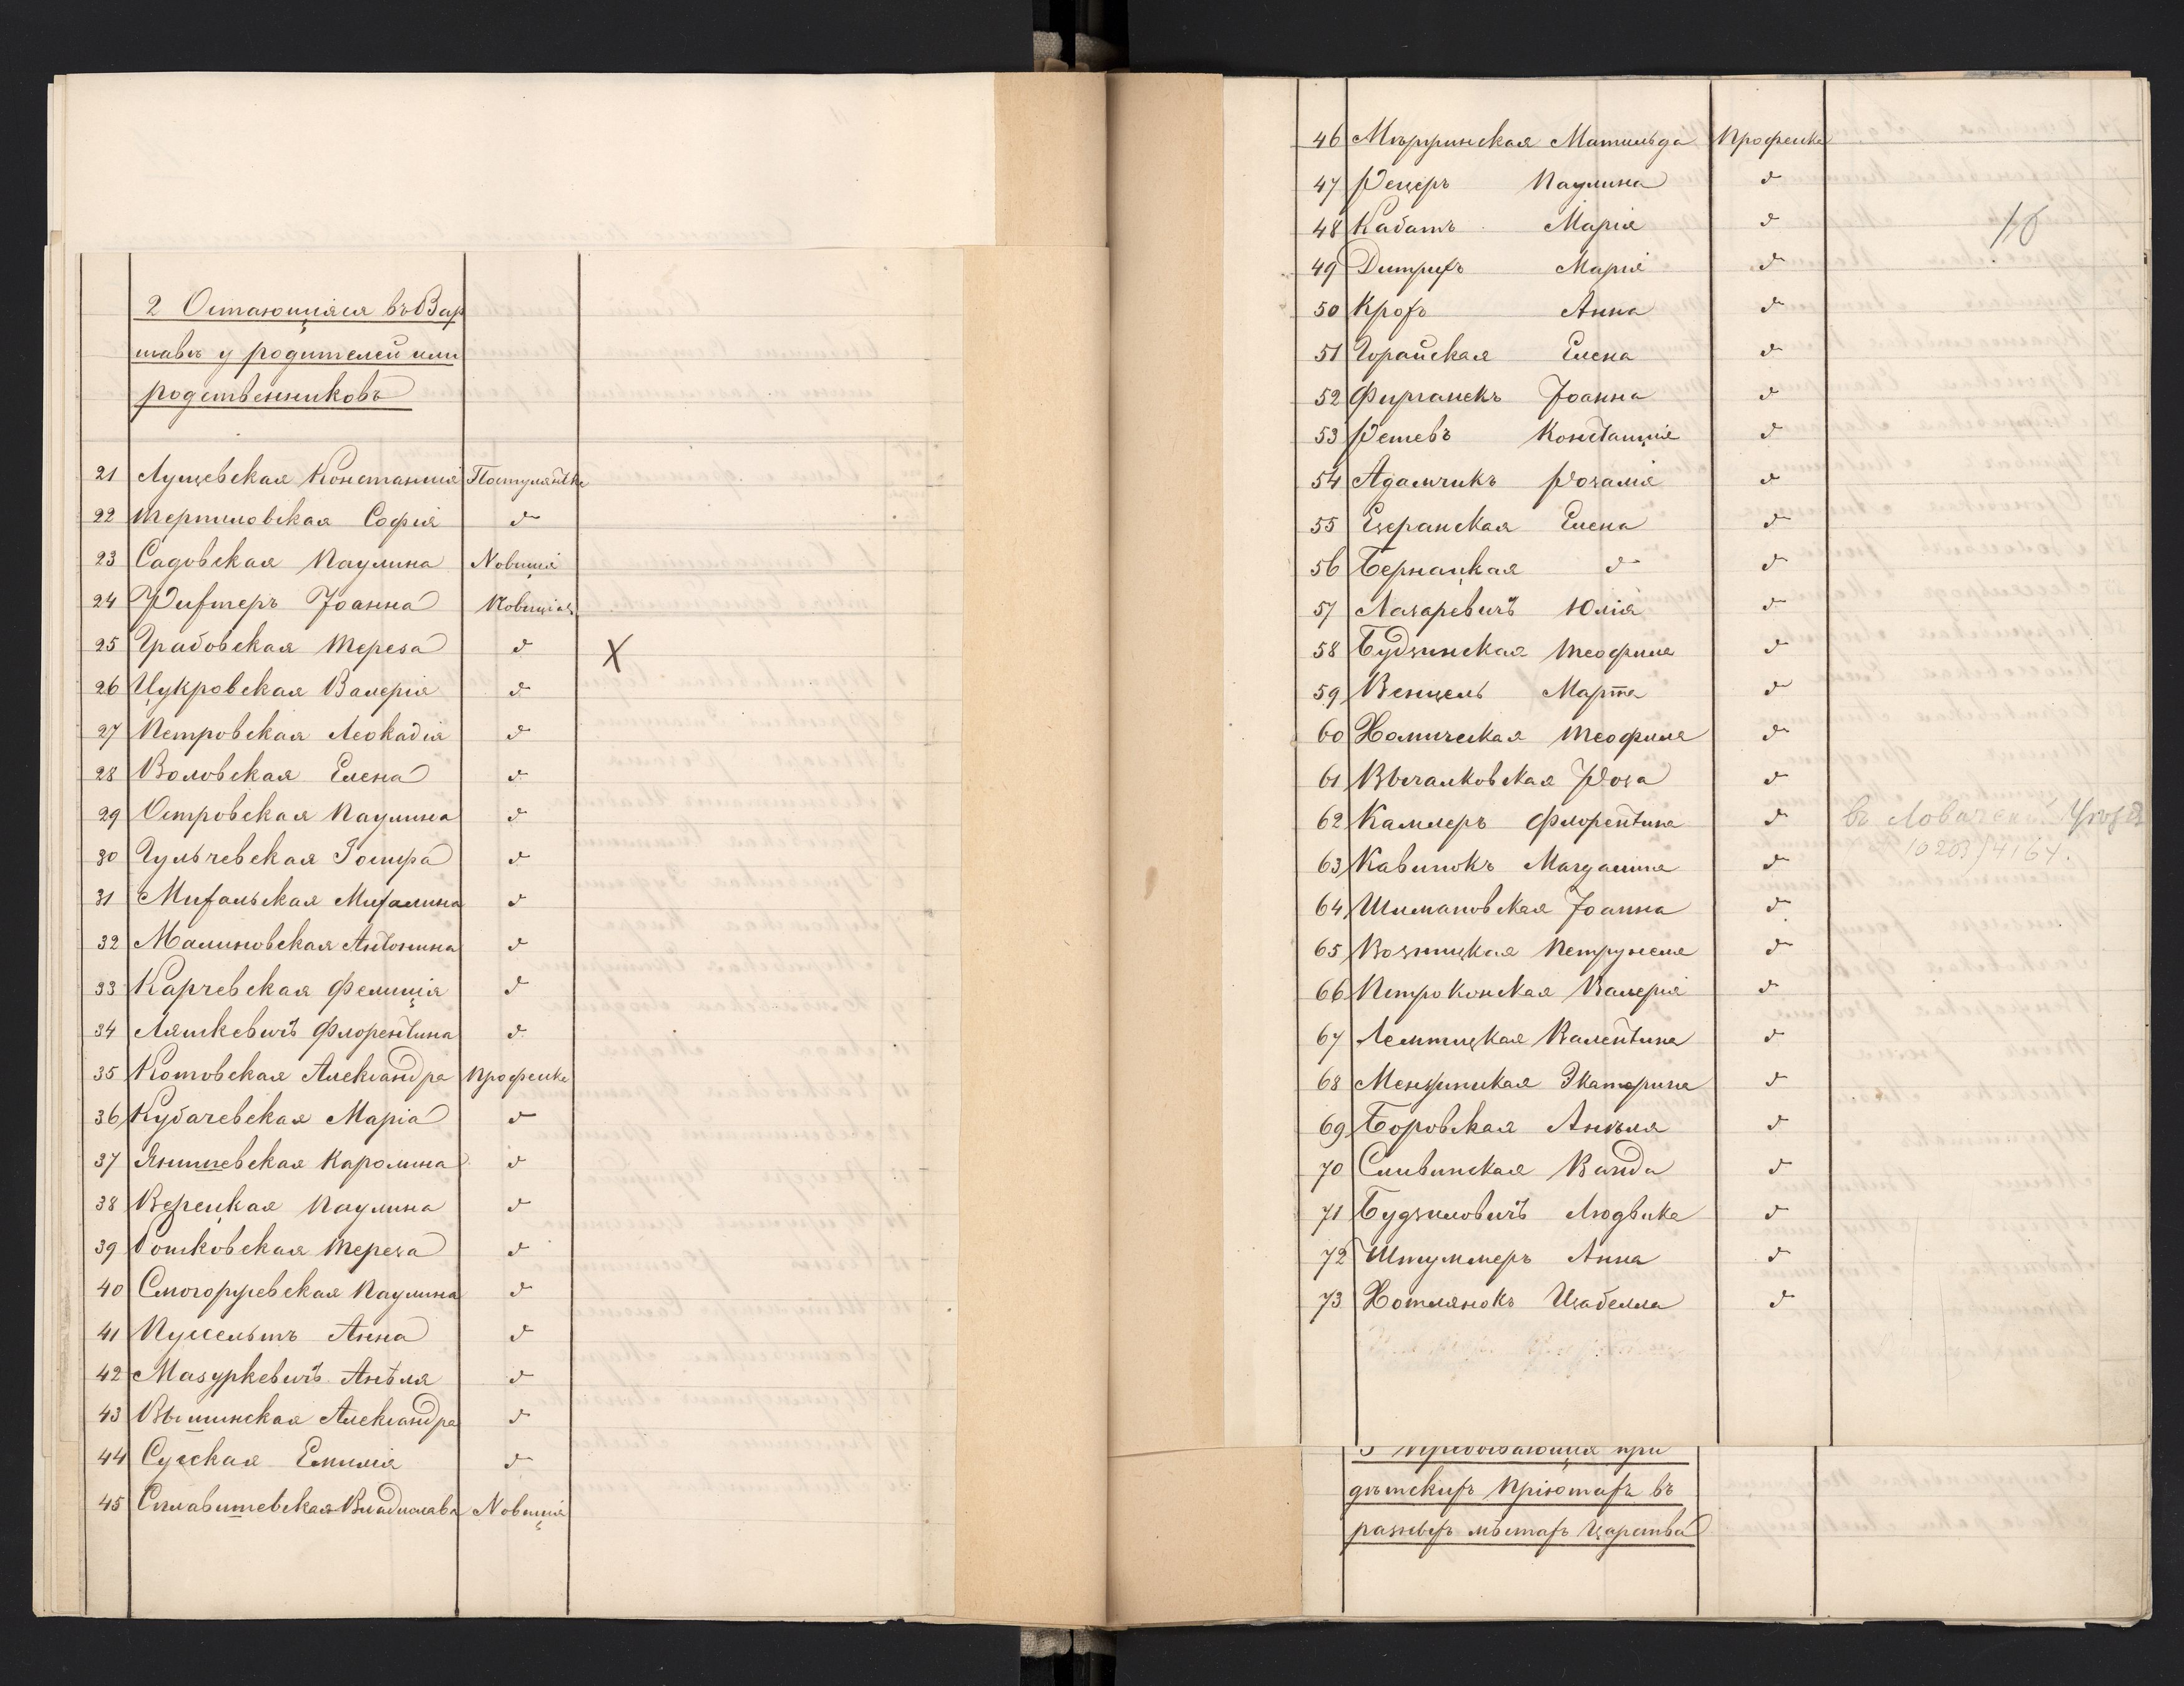 2 Остающіяся въ Вар
шавѣ у родителей или
родственниковъ
21 Лущевская Констанція Постулянтка
22 Терпиловская Софія d
23 Садовская Паулина Новиція
24 Рихтеръ Іоанна Новиція
25 Грабовская Тереза d X
26 Цукровская Валерія d
27 Петровская Леокадія d
28 Воловская Елена d
29 Островская Паулина d
30 Гульчевская d
31 Михальская Михалина d
32 Малиновская Антонина d
33 Карчевская Фелиція d
34 Ляшкевичъ Флорентина d
35 Котовская Александра Професка
36 Кубачевская Марія d
37 Янишевская Каролина d
38 Верецкая Паулина d
39 Гошковская Тереза d
40 Смогоржевская Паулина d
41 Пуссельтъ Анна d
42 Мазуркевичъ Анѣля d
43 Вышинская Александра d
44 Сусская Емилія d
45 Сплавишевская Владислава Новиція
46 Мѣржинская Матильда Професка
47 Рецеръ Паулина d
48 Кабатъ Марія d
49 Дитрихъ Марія d
50 Крохъ Анна d
51 Горайская Елена d
52 Фирганекъ Іоанна d
53 Решевъ Констанція d
54 Адамчикъ Розалія d
55 Езеранская Елена d
56 Бернацкая d d
57 Лазаревичъ Юлія d
58 Будзинская Теофиля d
59 Венцель Марта d
60 Хомическая Теофиля d
61 Высалковская Роза d
62 Каммеръ Флорентина d
63 Кавинокъ Магдалина d
64 Шимановская Іоанна d
65 Возницкая Петрунеля d
66 Петроконская Валерія d
67 Лемтицкая Валентина d
68 Менжинская Экатерина d
69 Боровская Анѣля d
70 Сливинская Ванда d
71 Будзиловичъ Людвика d
72 Штуммеръ Анна d
73 Хотлянокъ Изабелла d
3 Пребывающія при
дѣтскихъ Пріютахъ въ
разныхъ мѣстахъ Царства
въ Ловичск. Уѣздѣ
10203/4164.